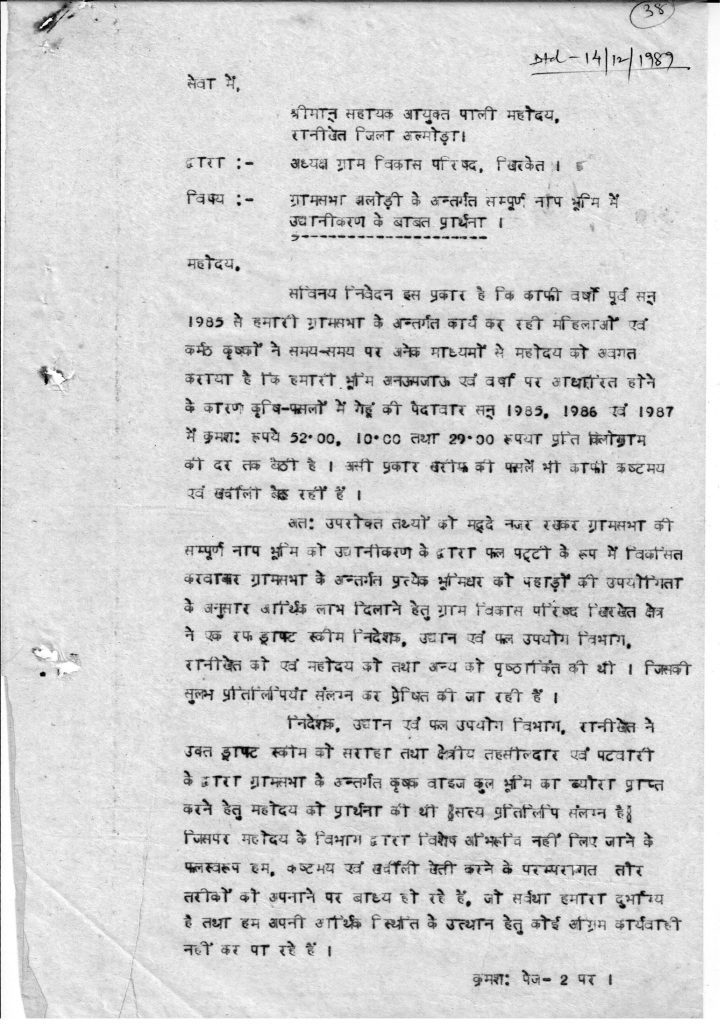 38
Dtd - 14/12/1989
सेवा में,
श्रीमान् सहायक आयुक्त पाली महोदय,
रानीखेत जिला अल्मोड़ा।
द्वारा :- अध्यक्ष ग्राम विकास परिषद, खिरकेत ।
विषय :- ग्रामसभा जलोड़ी के अन्तर्गत सम्पूर्ण नाप भूमि में
उद्यानीकरण के बाबत प्रार्थना ।
महोदय,
सविनय निवेदन इस प्रकार है कि काफी वर्षों पूर्व सन्
1985 से हमारी ग्रामसभा के अन्तर्गत कार्य कर रही महिलाओं एवं
कर्मठ कृषकों ने समय-समय पर अनेक माध्यमों से महोदय को अवगत
कराया है कि हमारी भूमि अनऊपजाऊ एवं वर्षा पर आधारित होने
के कारण कृषि-फसलों में गेहूं की पैदावार सन् 1985, 1986 एवं 1987
में क्रमश: रूपये 52.00, 10.00 तथा 29.00 रूपया प्रति किलोग्राम
की दर तक बैठी है । असी प्रकार खरीफ की फसलें भी काफी कष्टमय
एवं खर्चीली बैठ रहीं हैं ।
अत: उपरोक्त तथ्यों को मद्दे नजर रखकर ग्रामसभा की
सम्पूर्ण नाप भूमि को उद्यानीकरण के द्वारा फल पट्टी के रूप में विकसित
करवाकर ग्रामसभा के अन्तर्गत प्रत्येक भूमिधर को पहाड़ों की उपयोगिता
के अनुसार आर्थिक लाभ दिलाने हेतु ग्राम विकास परिषद खिरखेत क्षेत्र
ने एक रफ ड्राफ्ट स्कीम निदेशक, उद्यान एवं फल उपयोग विभाग,
रानीखेत को एवं महोदय को तथा अन्य को पृष्ठांकित की थी । जिसकी
सुलभ प्रतिलिपियां संलग्न कर प्रेषित की जा रही हैं ।
निदेशक, उद्यान एवं फल उपयोग विभाग, रानीखेत ने
उक्त ड्राफ्ट स्कीम को सराहा तथा क्षेत्रीय तहसीलदार एवं पटवारी
के द्वारा ग्रामसभा के अन्तर्गत कृषक वाइज कुल भूमि का ब्योरा प्राप्त
करने हेतु महोदय को प्रार्थना की थी सत्य प्रतिलिपि संलग्न है
जिसपर महोदय के विभाग द्वारा विशेष अभिरूचि नहीं लिए जाने के
फलस्वरूप हम, कष्टमय एवं खर्चीली खेती करने के परम्परागत तौर
तरीकों को अपनाने पर बाध्य हो रहे हैं, जो सर्वथा हमारा दुर्भाग्य
है तथा हम अपनी आर्थिक स्थिति के उत्थान हेतु कोई अग्रिम कार्यवाही
नहीं कर पा रहे हैं ।
क्रमश: पेज- 2 पर ।